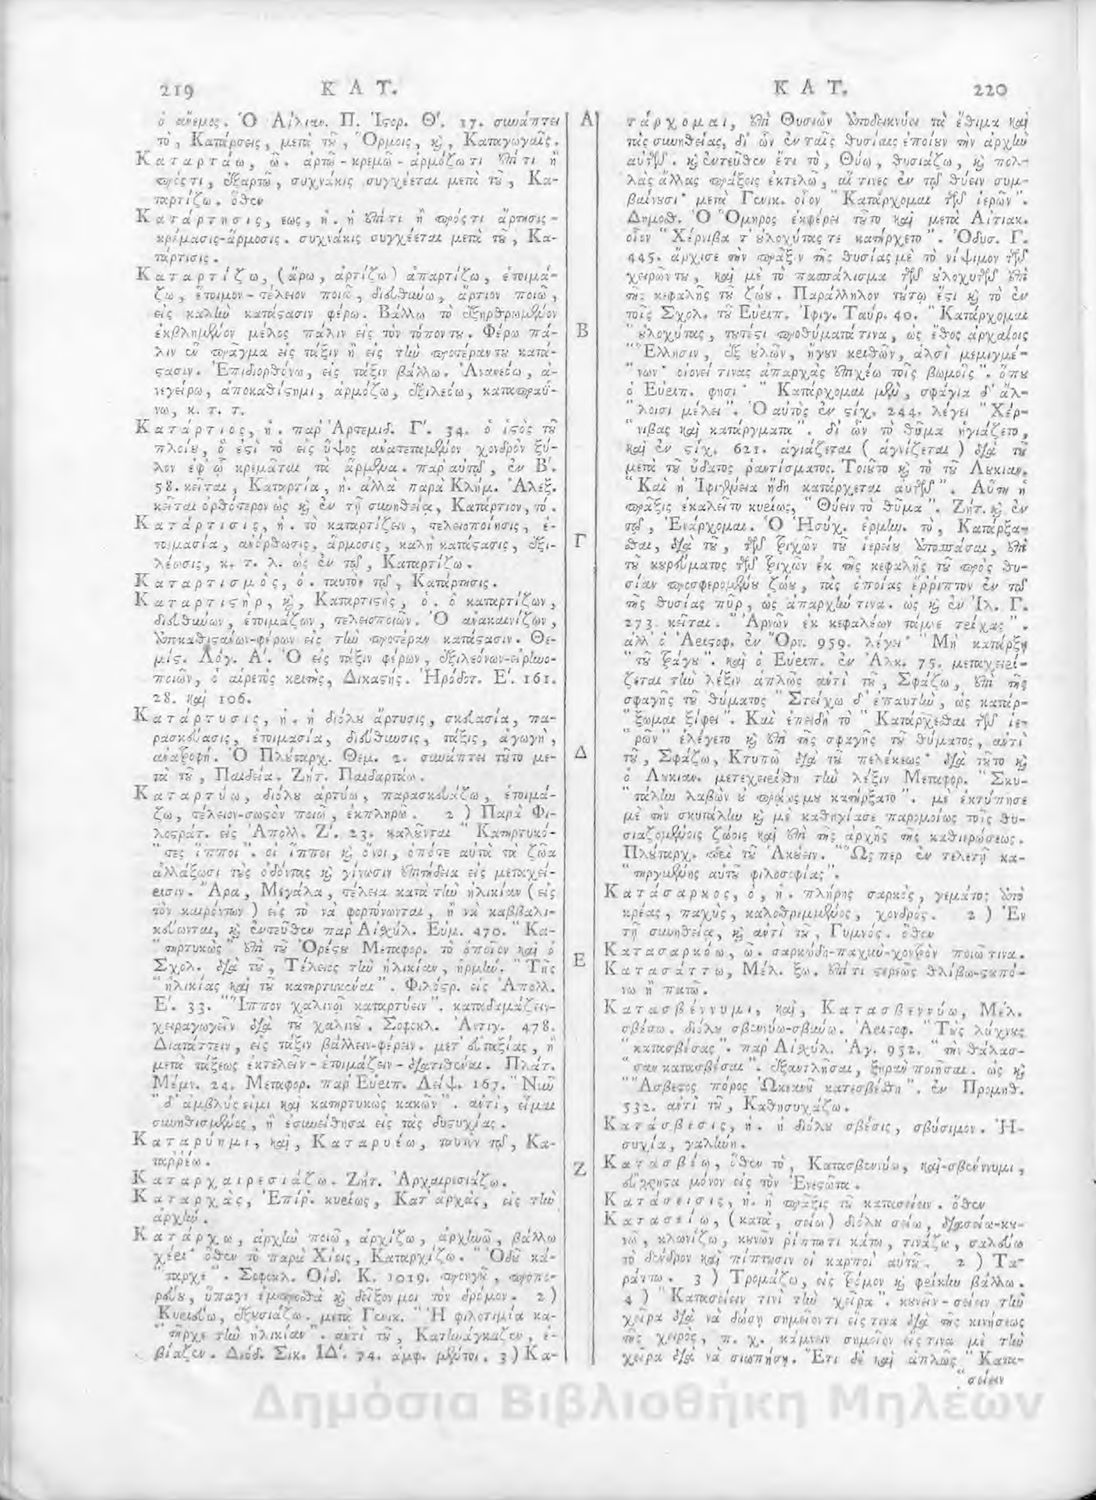 219 Κ Α Τ.
ὁ ἄνεμος. Ὁ Αἰλιαν. Π. Ἱστορ. Θ΄. 17. συνάπτει
τὸ, Κατάρσεις, μετὰ τοῦ, Ὅρμοις, καὶ, Καταγωγαῖς.
Καταρτάω, ῶ. ἀρτῶ-κρεμῶ-ἁρμόζω τι ἐπί τι ἢ
πρός τι, ἐξαρτῶ, συχνάκις συγχέεται μετὰ τοῦ, Κα-
ταρτίζω. ὅθεν
Κατάρτησις, εως, ἡ. ἡ ἐπί τι ἢ πρός τι ἄρτησις-
κρέμασις-ἅρμοσις. συχνάκις συγχέεται μετὰ τοῦ, Κα-
τάρτισις.
Καταρτίζω, (ἄρω, ἀρτίζω) ἀπαρτίζω, ἑτοιμά-
ζω, ἕτοιμον-τέλειον ποιῶ, διευθύνω, ἄρτιον ποιῶ,
εἰς καλὴν κατάστασιν φέρω. Βάλλω τὸ ἐξηρθρωμένον
ἐκβλημένον μέλος πάλιν εἰς τὸν τόπον του. Φέρω πά-
λιν ἓν πρᾶγμα εἰς τάξιν ἢ εἰς τὴν προτέραν του κατά-
στασιν. Ἐπιδιορθόνω, εἰς τάξιν βάλλω. Ἀνανεόω, ἀ-
νεγείρω, ἀποκαθίστημι, ἁρμόζω, ἐξιλεόω, καταπραΰ-
νω, κ. τ. τ.
Κατάρτιος, ἡ. παρ' Ἀρτεμιδ. Γ΄. 34. ὁ ἱστὸς τοῦ
πλοίου, ὅ ἐστι τὸ εἰς ὕψος ἀνατεταμένον χονδρὸν ξύ-
λον ἐφ' ᾧ κρεμᾶται τὰ ἄρμενα. παρ' αὐτῷ, ἐν Β΄.
58. κεῖται, Καταρτία, ἡ. ἀλλὰ παρὰ Κλήμ. Ἀλεξ.
κεῖται ὀρθότερον ὡς καὶ ἐν τῇ συνηθείᾳ, Κατάρτιον, τό.
Κατάρτισις, ἡ. τὸ καταρτίζειν, τελειοποίησις, ἑ-
τοιμασία, ἀνόρθωσις, ἅρμοσις, καλὴ κατάστασις, ἐξι-
λέωσις, κ. τ. λ. ὡς ἐν τῷ, Καταρτίζω.
Καταρτισμὸς, ὁ. ταὐτὸν τῷ, Κατάρτισις.
Καταρτιστὴρ, καὶ, Καταρτιστὴς, ὁ. ὁ καταρτίζων,
διευθύνων, ἑτοιμάζων, τελειοποιῶν. Ὁ ἀνακαινίζων,
ἀποκαθιστάνων-φέρων εἰς τὴν προτέραν κατάστασιν. Θε-
μίστ. Λόγ. Α΄. Ὁ εἰς τάξιν φέρων, ἐξιλεόνων-εἰρηνο-
ποιῶν, ὁ αἱρετὸς κριτὴς, Δικαστής. Ἡρόδοτ. Ε΄. 161.
28. καὶ 106.
Κατάρτυσις, ἡ. ἡ διόλου ἄρτυσις, σκευασία, πα-
ρασκεύασις, ἑτοιμασία, διεύθυνσις, τάξις, ἀγωγὴ,
ἀνατροφή. Ὁ Πλούταρχ. Θεμ. 2. συνάπτει τοῦτο με-
τὰ τοῦ, Παιδεία. Ζήτ. Παιδαρτάω.
Καταρτύω, διόλου ἀρτύω, παρασκευάζω, ἑτοιμά-
ζω, τέλειον-σωστὸν ποιῶ, ἐκπληρῶ. 2) Παρὰ Φι-
λοστράτ. εἰς Ἀπολλ. Ζ΄. 23. καλοῦνται "Καταρτυκό-
"τες ἵπποι". οἱ ἵπποι καὶ ὄνοι, ὁπότε αὐτὰ τὰ ζῶα
ἀλλάξωσι τοὺς ὀδόντας καὶ γίνωσιν ἐπιτήδεια εἰς μεταχεί-
ρισιν. Ἄρα, Μεγάλα, τέλεια κατὰ τὴν ἡλικίαν (εἰς
τὸν καιρόν των) εἰς τὸ νὰ φορτόνωνται, ἢ νὰ καββαλι-
κεύωνται, καὶ ἐντεῦθεν παρ' Αἰσχύλ. Εὐμ. 470. "Κα-
"τηρτυκὼς" ἐπὶ τοῦ Ὀρέστου Μεταφορ. τὸ ὁποῖον καὶ ὁ
Σχολ. διὰ τοῦ, Τέλειος τὴν ἡλικίαν, ἡρμήν. "Τῆς
"ἡλικίας καὶ τοῦ κατηρτυκέναι". Φιλόστρ. εἰς Ἀπολλ.
Ε΄. 33. "Ἵππον χαλινῷ καταρτύειν". καταδαμάζειν-
χειραγωγεῖν διὰ τοῦ χαλινοῦ. Σοφοκλ. Ἀντιγ. 478.
Διατάττειν, εἰς τάξιν βάλλειν-φέρειν. μετ' εὐταξίας, ἢ
μετὰ τάξεως ἐκτελεῖν-ἑτοιμάζειν-διατιθέναι. Πλάτ.
Μέμν. 24. Μεταφορ. παρ' Εὐριπ. Λείψ. 167. "Νῦν
"δ' ἀμβλύς εἰμι καὶ κατηρτυκὼς κακῶν". ἀντὶ, εἶμαι
συνηθισμένος, ἢ ἐσυνείθησα εἰς τὰς δυστυχίας.
Καταρύημι, καὶ, Καταρυέω, ταὐτὸν τῷ, Κα-
ταῤῥέω.
Καταρχαιρεσιάζω. Ζήτ. Ἀρχαιρεσιάζω.
Καταρχὰς, Ἐπίῤ. κυρίως, Κατ' ἀρχὰς, εἰς τὴν
ἀρχήν.
Κατάρχω, ἀρχὴν ποιῶ, ἀρχίζω, ἀρχινῶ, βάλλω
χέρι· ὅθεν τὸ παρὰ Χίοις, Καταρχίζω. "Ὁδοῦ κά-
"ταρχε". Σοφοκλ. Οἰδ. Κ. 1019. προηγοῦ, προπο-
ρεύου, ὕπαγε ἐμπροσθὰ καὶ δεῖξόν μοι τὸν δρόμον. 2)
Κυριεύω, ἐξουσιάζω. μετὰ Γενικ. "Ἡ φιλοτιμία κα-
"τῆρχε τὴν ἡλικίαν". ἀντὶ τοῦ, Κατηνάγκαζεν, ἐ-
βίαζεν. Διόδ. Σικ. ΙΔ΄. 74. ἀμφ. μέντοι. 3) Κα-
Α
Β
Γ
Δ
Ε
Ζ
Κ Α Τ. 220
τάρχομαι, ἐπὶ Θυσιῶν ὑποδεικνύει τὰ ἔθιμα καὶ
τὰς συνηθείας, δι' ὧν ἐν ταῖς θυσίαις ἐποίουν τὴν ἀρχὴν
αὐτῶν. καὶ ἐντεῦθεν ἔτι τὸ, Θύω, θυσιάζω, καὶ πολ-
λὰς ἄλλας πράξεις ἐκτελῶ, αἵ τινες ἐν τῷ θύειν συμ-
βαίνουσι· μετὰ Γενικ. οἷον "Κατάρχομαι τῶν ἱερῶν".
Δημοσθ. Ὁ Ὅμηρος ἐκφέρει τοῦτο καὶ μετὰ Αἰτιακ.
οἷον "Χέρνιβα τ' οὐλοχύτας τε κατήρχετο". Ὀδυσ. Γ.
445. ἄρχισε τὴν πρᾶξιν τῆς θυσίας μὲ τὸ νίψιμον τῶν
χειρῶν του, καὶ μὲ τὸ παστάλισμα τῶν οὐλοχυτῶν ἐπὶ
τῆς κεφαλῆς τοῦ ζώου. Παράλληλον τούτῳ ἐστὶ καὶ τὸ ἐν
τοῖς Σχολ. τοῦ Εὐριπ. Ἰφιγ. Ταύρ. 40. "Κατάρχομαι
"οὐλοχύτας, τουτέστι προθύματά τινα, ὡς ἔθος ἀρχαίοις
"Ἕλλησιν, ἐξ οὐλῶν, ἤγουν κριθῶν, ἁλσὶ μεμιγμέ-
"νων· οἱονεί τινας ἀπαρχὰς ἐπιχέω τοῖς βωμοῖς". ὅπου
ὁ Εὐριπ. φησί· "Κατάρχομαι μὲν, σφάγια δ' ἄλ-
"λοισι μέλει". Ὁ αὐτὸς ἐν στίχ. 244. λέγει "Χέρ-
"νιβας καὶ κατάργματα". δι' ὧν τὸ θῦμα ἡγιάζετο,
καὶ ἐν στίχ. 621. ἁγιάζεται (ἁγνίζεται) διὰ τοῦ
μετὰ τοῦ ὕδατος ῥαντίσματος. Τοιοῦτο καὶ τὸ τοῦ Λουκιαν.
"Καὶ ἡ Ἰφιγένεια ἤδη κατάρχεται αὐτῶν". Αὕτη ἡ
πρᾶξις ἐκαλεῖτο κυρίως, "Θύειν τὸ θῦμα". Ζήτ. καὶ ἐν
τῷ, Ἐνάρχομαι. Ὁ Ἡσύχ. ἑρμην. τὸ, Κατάρξα-
σθαι, διὰ τοῦ, τῶν τριχῶν τοῦ ἱερείου ἀποσπάσαι, ἐπὶ
τοῦ κυρεύματος τῶν τριχῶν ἐκ τῆς κεφαλῆς τοῦ πρὸς θυ-
σίαν προσφερομένου ζώου, τὰς ὁποίας ἔῤῥιπτον ἐν τῷ
τῆς θυσίας πῦρ, ὡς ἀπαρχήν τινα. ὡς καὶ ἐν Ἰλ. Γ.
273. κεῖται. "Ἀρνῶν ἐκ κεφαλέων τάμνε τρίχας".
ἀλλ' ὁ Ἀριστοφ. ἐν Ὄρν. 959. λέγει "Μὴ κατάρξῃ
"τοῦ τράγου". καὶ ὁ Εὐριπ. ἐν Ἀλκ. 75. μεταχειρί-
ζεται τὴν λέξιν ἁπλῶς ἀντὶ τοῦ, Σφάζω, ἐπὶ τῆς
σφαγῆς τοῦ θύματος "Στείχω δ' ἐπ' αὐτὴν, ὡς κατάρ-
"ξωμαι ξίφει". Καὶ ἐπειδὴ τὸ "Κατάρχεσθαι τῶν ἱε-
"ρῶν" ἐλέγετο καὶ ἐπὶ τῆς σφαγῆς τοῦ θύματος, ἀντὶ
τοῦ, Σφάζω, Κτυπῶ διὰ τοῦ πελέκεως· διὰ τοῦτο καὶ
ὁ Λουκιαν. μετεχειρίσθη τὴν λέξιν Μεταφορ. "Σκυ-
"τάλην λαβὼν κατήρξατο". μὲ ἐκτύπησε
μὲ τὴν σκυτάλην καὶ μὲ καθηγίασε παρομοίως τοῖς θυ-
σιαζομένοις ζώοις καὶ ἐπὶ τῆς ἀρχῆς τῆς καθιερώσεως.
Πλούταρχ. περὶ τοῦ Ἀκούειν. "Ὥσπερ ἐν τελετῇ κα-
"τηργμένης αὐτοῦ φιλοσοφίας".
Κατάσαρκος, ὁ, ἡ. πλήρης σαρκὸς, γεμάτος ἀπὸ
κρέας, παχὺς, καλοθρεμμένος, χονδρός. 2) Ἐν
τῇ συνηθείᾳ, καὶ ἀντὶ τοῦ, Γυμνός. ὅθεν
Κατασαρκόω, ῶ. σαρκώδη-παχὺν-χονδρὸν ποιῶ τινα.
Κατασάττω, Μέλ. ξω. ἐπί τι στερεῶς θλίβω-ἐπά-
νω ἢ πατῶ.
Κατασβέννυμι, καὶ, Κατασβεννύω, Μέλ.
σβέσω. διόλου σβεννύω-σβύνω. Ἀριστοφ. "Τοὺς λύχνους
"κατασβέσας". παρ' Αἰσχύλ. Ἀγ. 952. "τὴν θάλασ-
"σαν κατασβέσαι". ἐξαντλῆσαι, ξηρὰν ποιῆσαι. ὡς καὶ
"Ἄσβεστος πόρος Ὠκεανοῦ κατεσβέσθη". ἐν Προμηθ.
532. ἀντὶ τοῦ, Καθησυχάζω.
Κατάσβεσις, ἡ. ἡ διόλου σβέσις, σβύσιμον. Ἡ-
συχία, γαλήνη.
Κατασβέω, ὅθεν τὸ, Κατασβεννύω, καὶ-σβέννυμι,
εὔχρηστα μόνον εἰς τὸν Ἐνεστῶτα.
Κατάσεισις, ἡ. ἡ πρᾶξις τοῦ κατασείειν. ὅθεν
Κατασείω, (κατὰ, σείω) διόλου σείω, διασείω-κου-
νῶ, κλωνίζω, κουνῶν ῥίπτω τι κάτω, τινάζω, σαλεύω
τὸ δένδρον καὶ πίπτουσιν οἱ καρποὶ αὐτοῦ. 2) Τα-
ράττω. 3) Τρομάζω, εἰς τρόμον καὶ φρίκην βάλλω.
4) "Κατασείειν τινὶ τὴν χεῖρα". κουνεῖν-σείειν τὴν
χεῖρα διὰ νὰ δώσῃ σημεῖόν τι εἴς τινα διὰ τῆς κινήσεως
τῆς χειρός, π. χ. κάμνειν σημεῖον εἴς τινα μὲ τὴν
χεῖρα διὰ νὰ σιωπήσῃ. Ἔτι δὲ καὶ ἁπλῶς "Κατα-
"σείειν
Δημόσια Βιβλιοθήκη Μηλεών